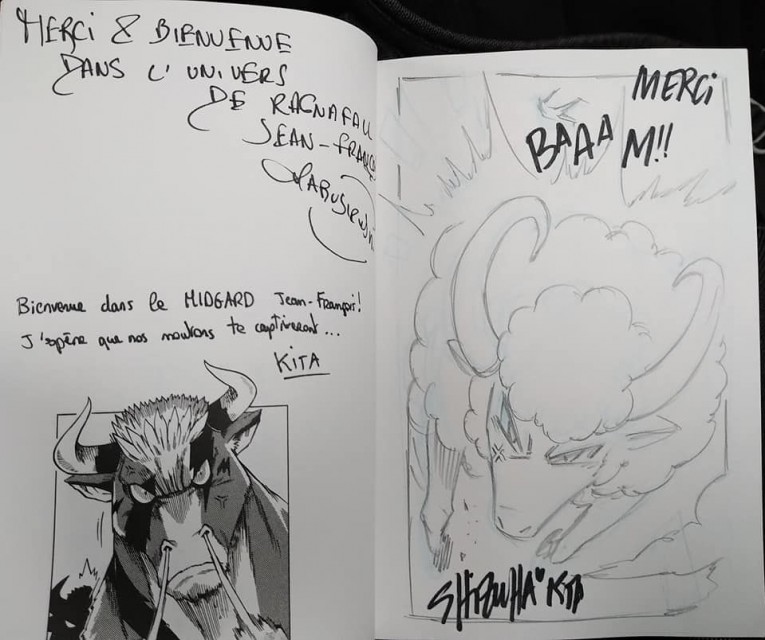 MERCI & BIENVENUE
DANS L'UNIVERS
DE RAGNAFALL
JEAN-FRANÇ
Bienvenue dans le MIDGARD Jean-François!
J'espère que nos moutons te captiveront...
KITA
MERCI
BAAA M!!
KITA